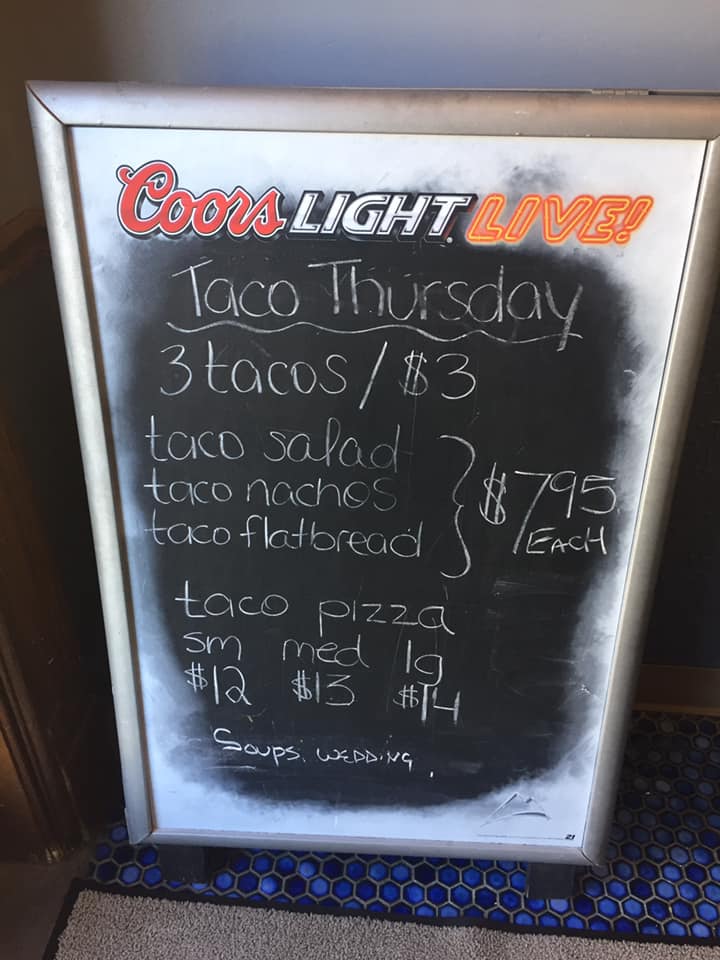 Coors LIGHT LIVE!
Taco Thursday
3 tacos / $3
taco salad
taco nachos
taco flatbread
$795
EACH
taco pizza
sm med lg
$12 $13 $14
Soups: WEDDING,